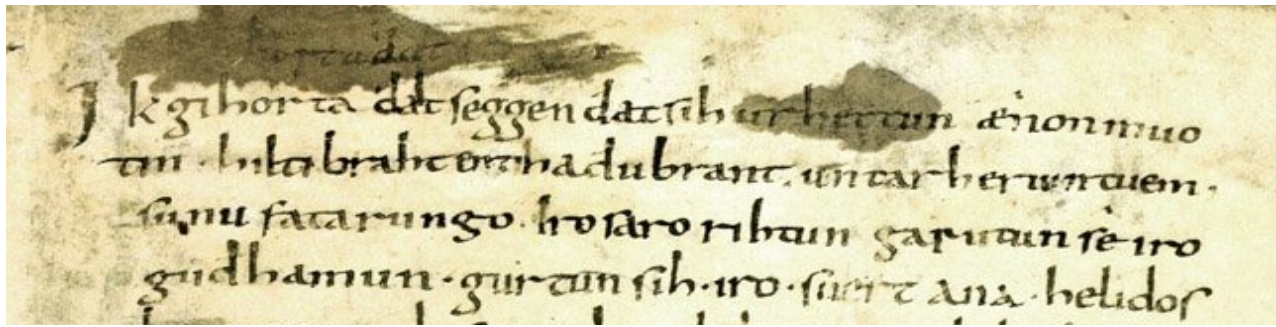 Ik gihorta dat seggen dat sih urhettun ænon muo
tin · hiltibraht enti hadubrant · untar heriuntuem ·
sunu fatarungo · iro saro rihtun garutun sê iro
gudhamun · gurtun sih · iro · suert ana · helidos